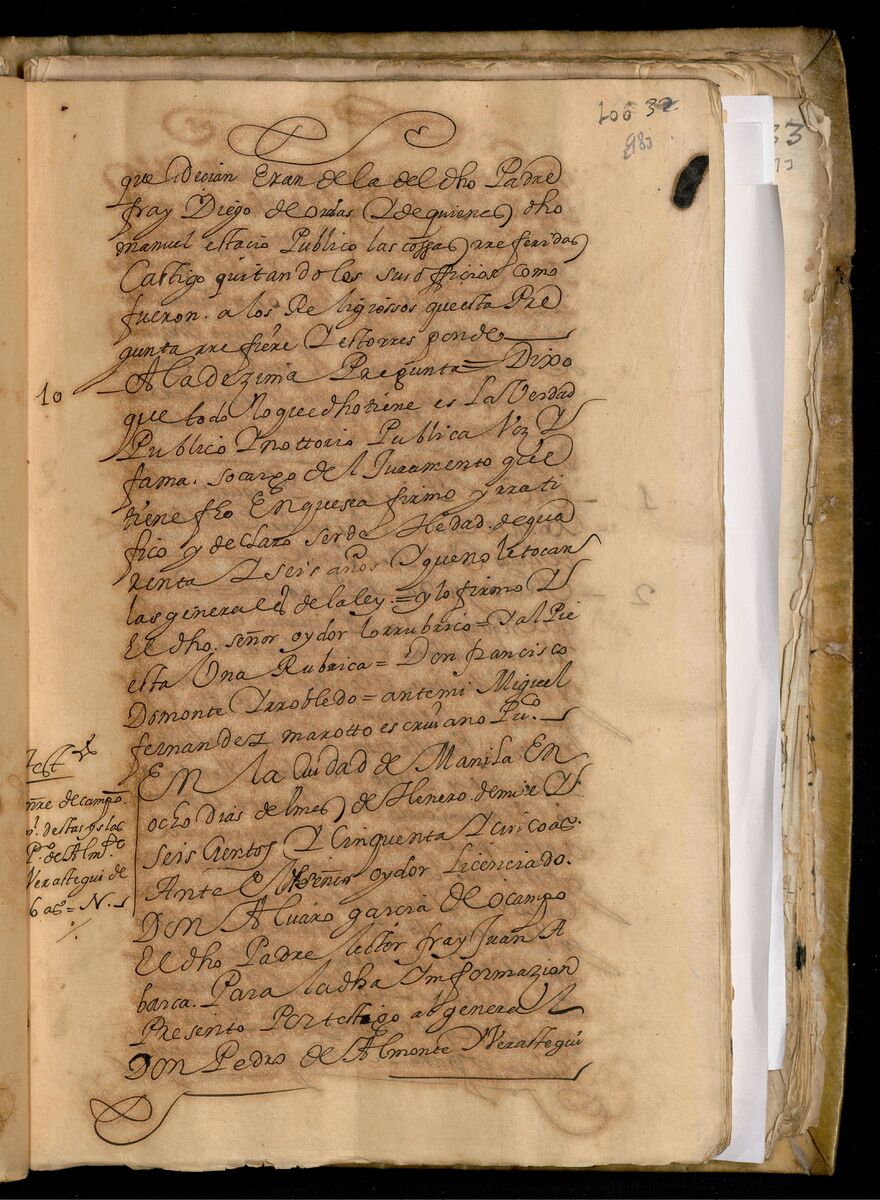 106 32
98
que decian Eran de la del dho Padre
fray Diego de ordas Y de quienes dho
manuel estacio Publico las cossas rreferidas
Castigo quitandoles sus officios como
fueron. a los Religiossos que esta Pre
gunta rrefiere Y esto rresponde
10
A la dezima Pregunta = Dixo
que todo lo que dho tiene es La Verdad
Publico Y nottorio Publica Voz Y
fama. so cargo del Juramento que
tiene fho En que sea firmo y rrati
fico y declaro ser de Hedad de qua
renta Y seis años Y que no le tocan
las generales de la ley = y lo firmo Y
El dho. señor oydor lo rrubrico = Y al Pie
esta Una Rubrica = Don francisco
Domonte Y rrobledo = ante mi Miguel
fernandez marotto escriuano Puco.
En la Ciudad de Manila En
ocho dias del mes de Henero de mill Y
seis Cientos Y Cinquenta Y cinco as.
Ante El señor oydor Licenciado.
Don Aluaro garcia de ocampo
El dho Padre lector fray Juan A
barca. Para la dha Ynformazion
Presento Por testigo al general
Don Pedro de Almonte Verastegui
Testo
mre de campo.
destas yslas
Po. de Almte
Verastegui de
6 as = N.